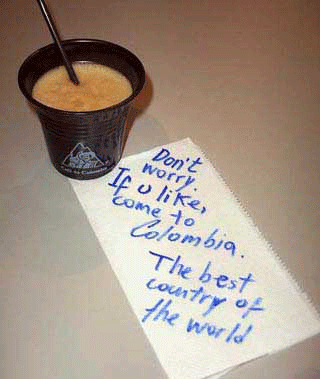 Don't
worry.
If u like,
come to
Colombia.
The best
country of
the world